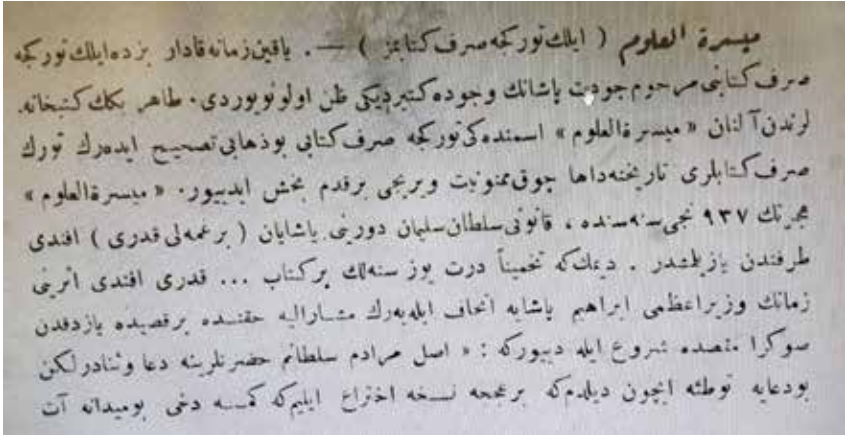 ميسرة العلوم ( ايلك توركجه صرف كتابمز ) — . ياقين زمانه قادار بزده ايلك توركجه
صرف كتابنى مرحوم جودت پاشانك وجوده كتيرديكى ظن اولونويوردى . طاهر بكك كتبخانه
لرندن آلنان « ميسرة العلوم » اسمنده كى توركجه صرف كتابى بو ذهابى تصحيح ايدهرك تورك
صرف كتابلرى تاريخنه داها چوق ممنونيت ويريجى برقدم بخش ايدييور . « ميسرة العلوم »
هجرتك ٩٣٧ نجى سنه سنده ، قانونى سلطان سليمان دورينى ياشايان ( برغمه لى قدرى ) افندى
طرفندن يازيلمشدر . ديمك كه تخميناً درت يوز سنه لك بركتاب ... قدرى افندى اثرينى
زمانك وزير اعظمى ابراهيم پاشايه اتحاف ايليه رك مشاراليه حقنده برقصيده يازدقدن
صوكرا مقصده شروع ايله دييوركه : « اصل مرادم سلطانم حضرتلرينه دعا وثنادر لكن
بودعايه توطئه ايچون ديلدم كه برعجبه نسخه اختراع ايليم كه كمسه دخى بوميدانه آت